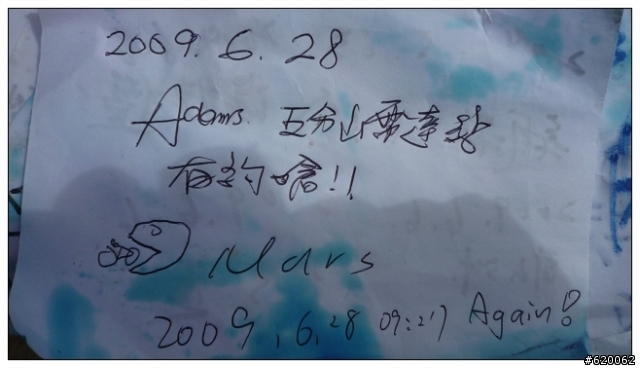 2009. 6. 28
Adams. 五分山雷達站
有約嗐!!
Mars
2009, 6, 28 09:27 Again!
#620062